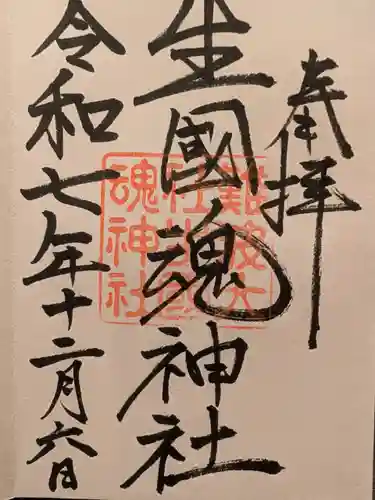 奉拝
生國魂神社
難波大
社生國
魂神社
令和七年十二月六日